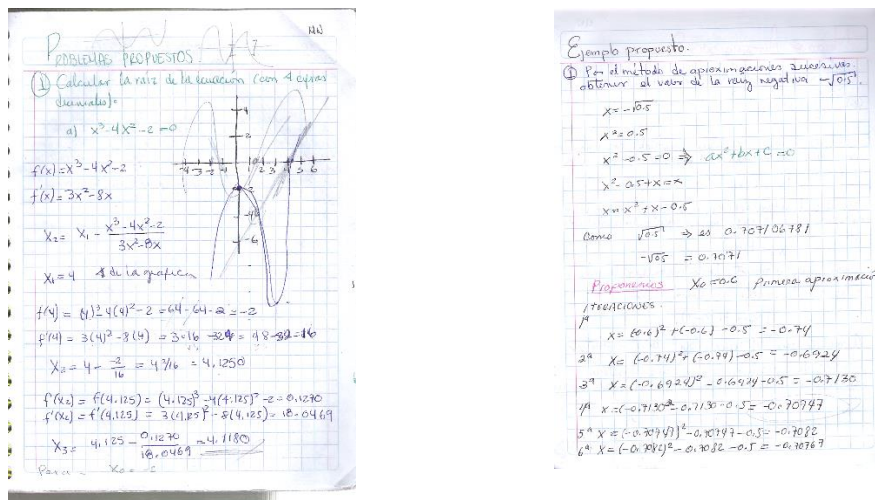 NN
PROBLEMAS PROPUESTOS
① Calcular la raiz de la ecuación (con 4 cifras
decimales):
a) x³-4x²-2=0
f(x)=x³-4x²-2
f'(x)=3x²-8x
x₂= x₁ - x³-4x²-2 / 3x²-8x
x₁=4 de la grafica
f(4)=(4)³-4(4)²-2=64-64-2=-2
f'(4)=3(4)²-8(4)=3*16-32=48-32=16
x₂=4- -2/16 = 4 2/16 = 4,1250
f(x₂)=f(4,125)=(4,125)³-4(4,125)²-2=0,1270
f'(x₂)=f'(4,125)=3(4,125)²-8(4,125)=18.0469
x₃= 4,125- 0,1270/18.0469 =4,1180
Para
-4 -3 -2 -1 1 2 3 4 5 6
4
2
-2
-4
-6
Ejemplo propuesto.
① Por el metodo de aproximaciones sucesivas
obtener el valor de la raiz negativa -√0.5
x=-√0.5
x²=0.5
x²-0.5=0 ⇒ ax²+bx+c=0
x²-0.5+x=x
x=x²+x-0.5
Como √0.5 ⇒ es 0.707106781
-√0.5 = 0.7071
Proponemos X₀=0.6 primera aproximació
ITERACIONES.
1ª
x=(0.6)²+(-0.6)-0.5=-0.74
2ª x=(-0.74)²+(-0.74)-0.5=-0.6924
3ª x=(-0.6924)²-0.6924-0.5=-0.7130
4ª x=(-0.7130²-0.7130-0.5=-0.70947
5ª x=(-0.70947)²-0.70947-0.5=-0.7082
6ª x=(-0.7082)²-0.7082-0.5=-0.70767